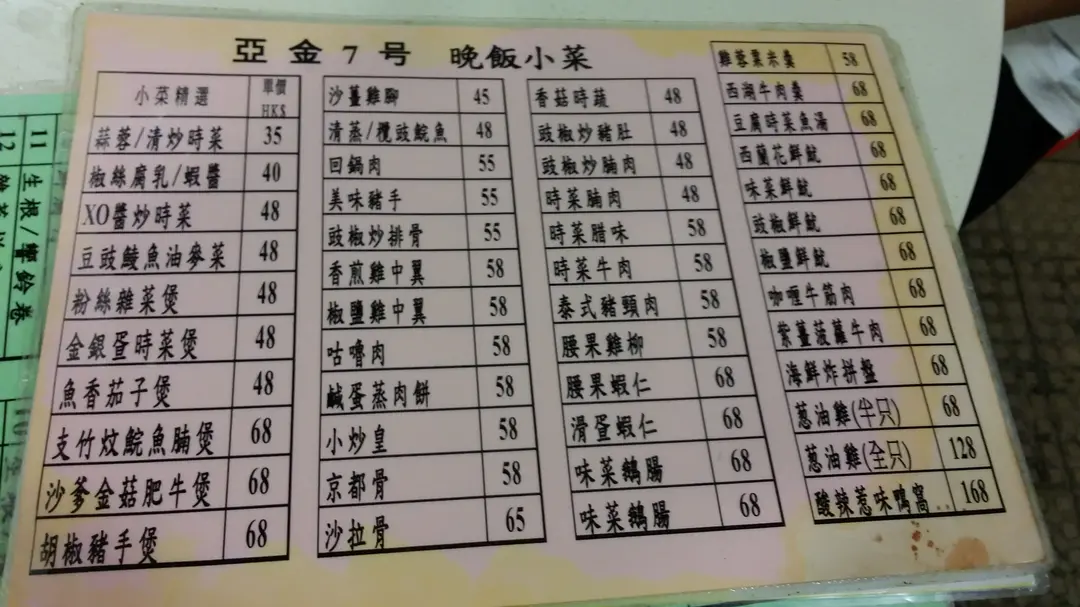 亞金7号 晚飯小菜
小菜精選 單價 HK$
蒜蓉/清炒時菜 35
椒絲腐乳/蝦醬 40
XO醬炒時菜 48
豆豉鯪魚油麥菜 48
粉絲雜菜煲 48
金銀蛋時菜煲 48
魚香茄子煲 48
支竹炆鯇魚腩煲 68
沙爹金菇肥牛煲 68
胡椒豬手煲 68
沙薑雞腳 45
清蒸/欖豉鯇魚 48
回鍋肉 55
美味豬手 55
豉椒炒排骨 55
香煎雞中翼 58
椒鹽雞中翼 58
咕嚕肉 58
鹹蛋蒸肉餅 58
小炒皇 58
京都骨 58
沙拉骨 65
香菇時蔬 48
豉椒炒豬肚 48
豉椒炒腩肉 48
時菜腩肉 48
時菜腊味 58
時菜牛肉 58
泰式豬頸肉 58
腰果雞柳 58
腰果蝦仁 68
滑蛋蝦仁 68
味菜鵝腸 68
味菜鵝腸 68
雞蓉粟米羹 58
西湖牛肉羹 68
豆腐時菜魚湯 68
西蘭花鮮魷 68
味菜鮮魷 68
豉椒鮮魷 68
椒鹽鮮魷 68
咖喱牛筋肉 68
紫薑菠蘿牛肉 68
海鮮炸拼盤 68
蔥油雞(半只) 68
蔥油雞(全只) 128
酸辣惹味鴨窩 168
11 生根/響鈴卷
12